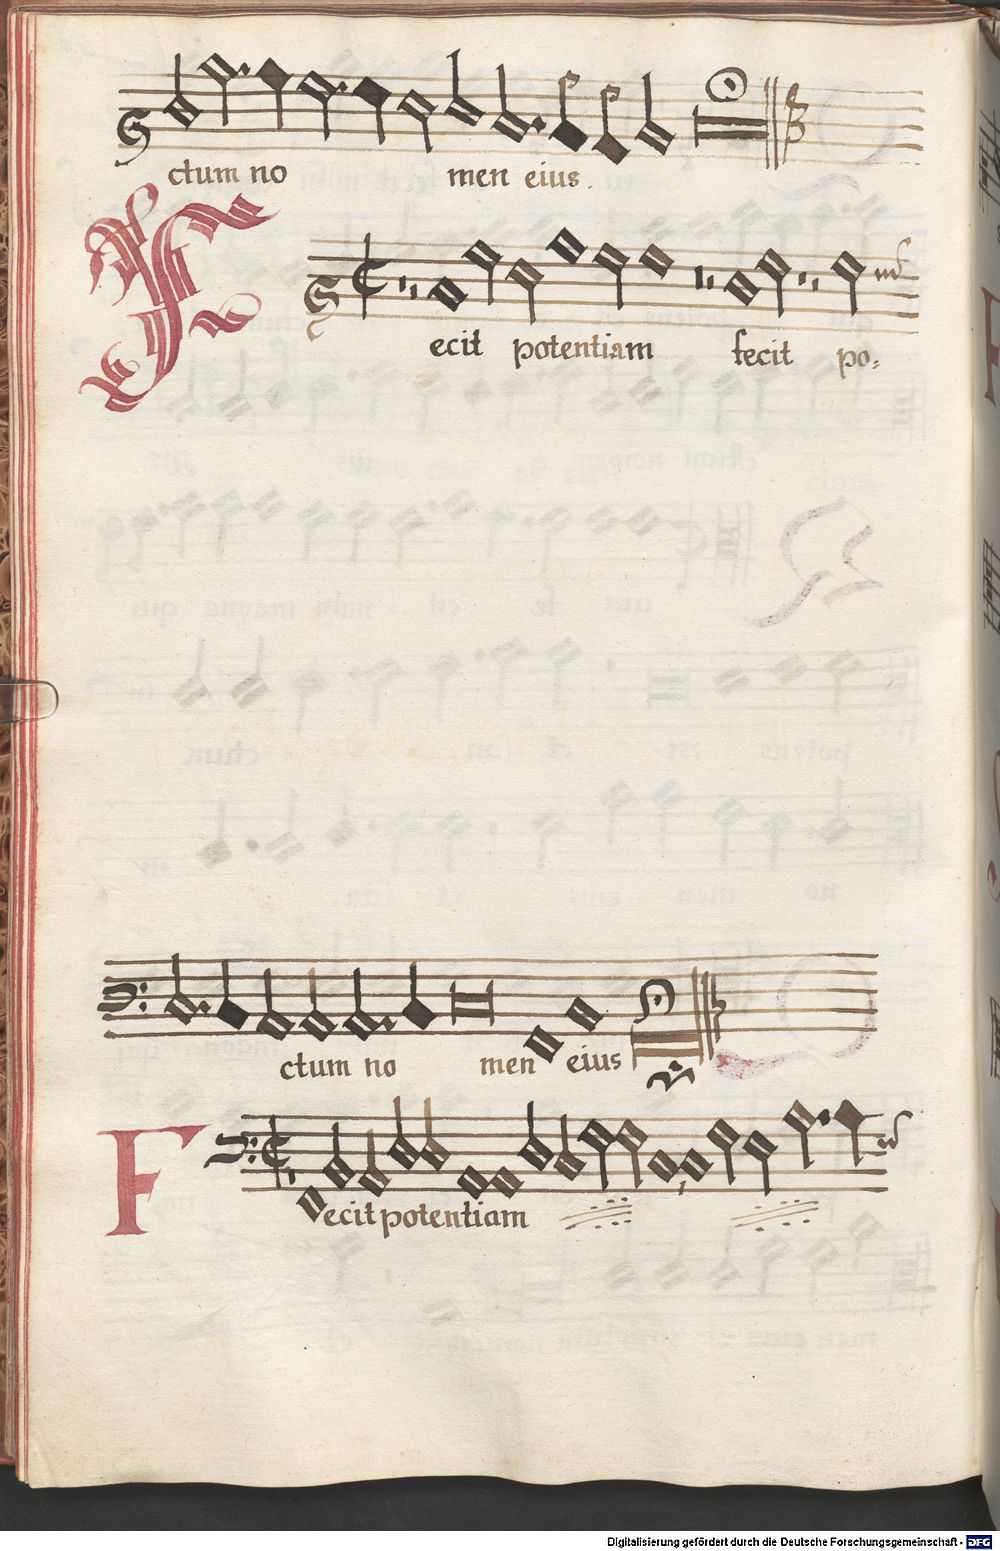 ctum no men eius.
Fecit potentiam fecit po=
ctum no men eius
Fecit potentiam
Digitalisierung gefördert durch die Deutsche Forschungsgemeinschaft - DFG